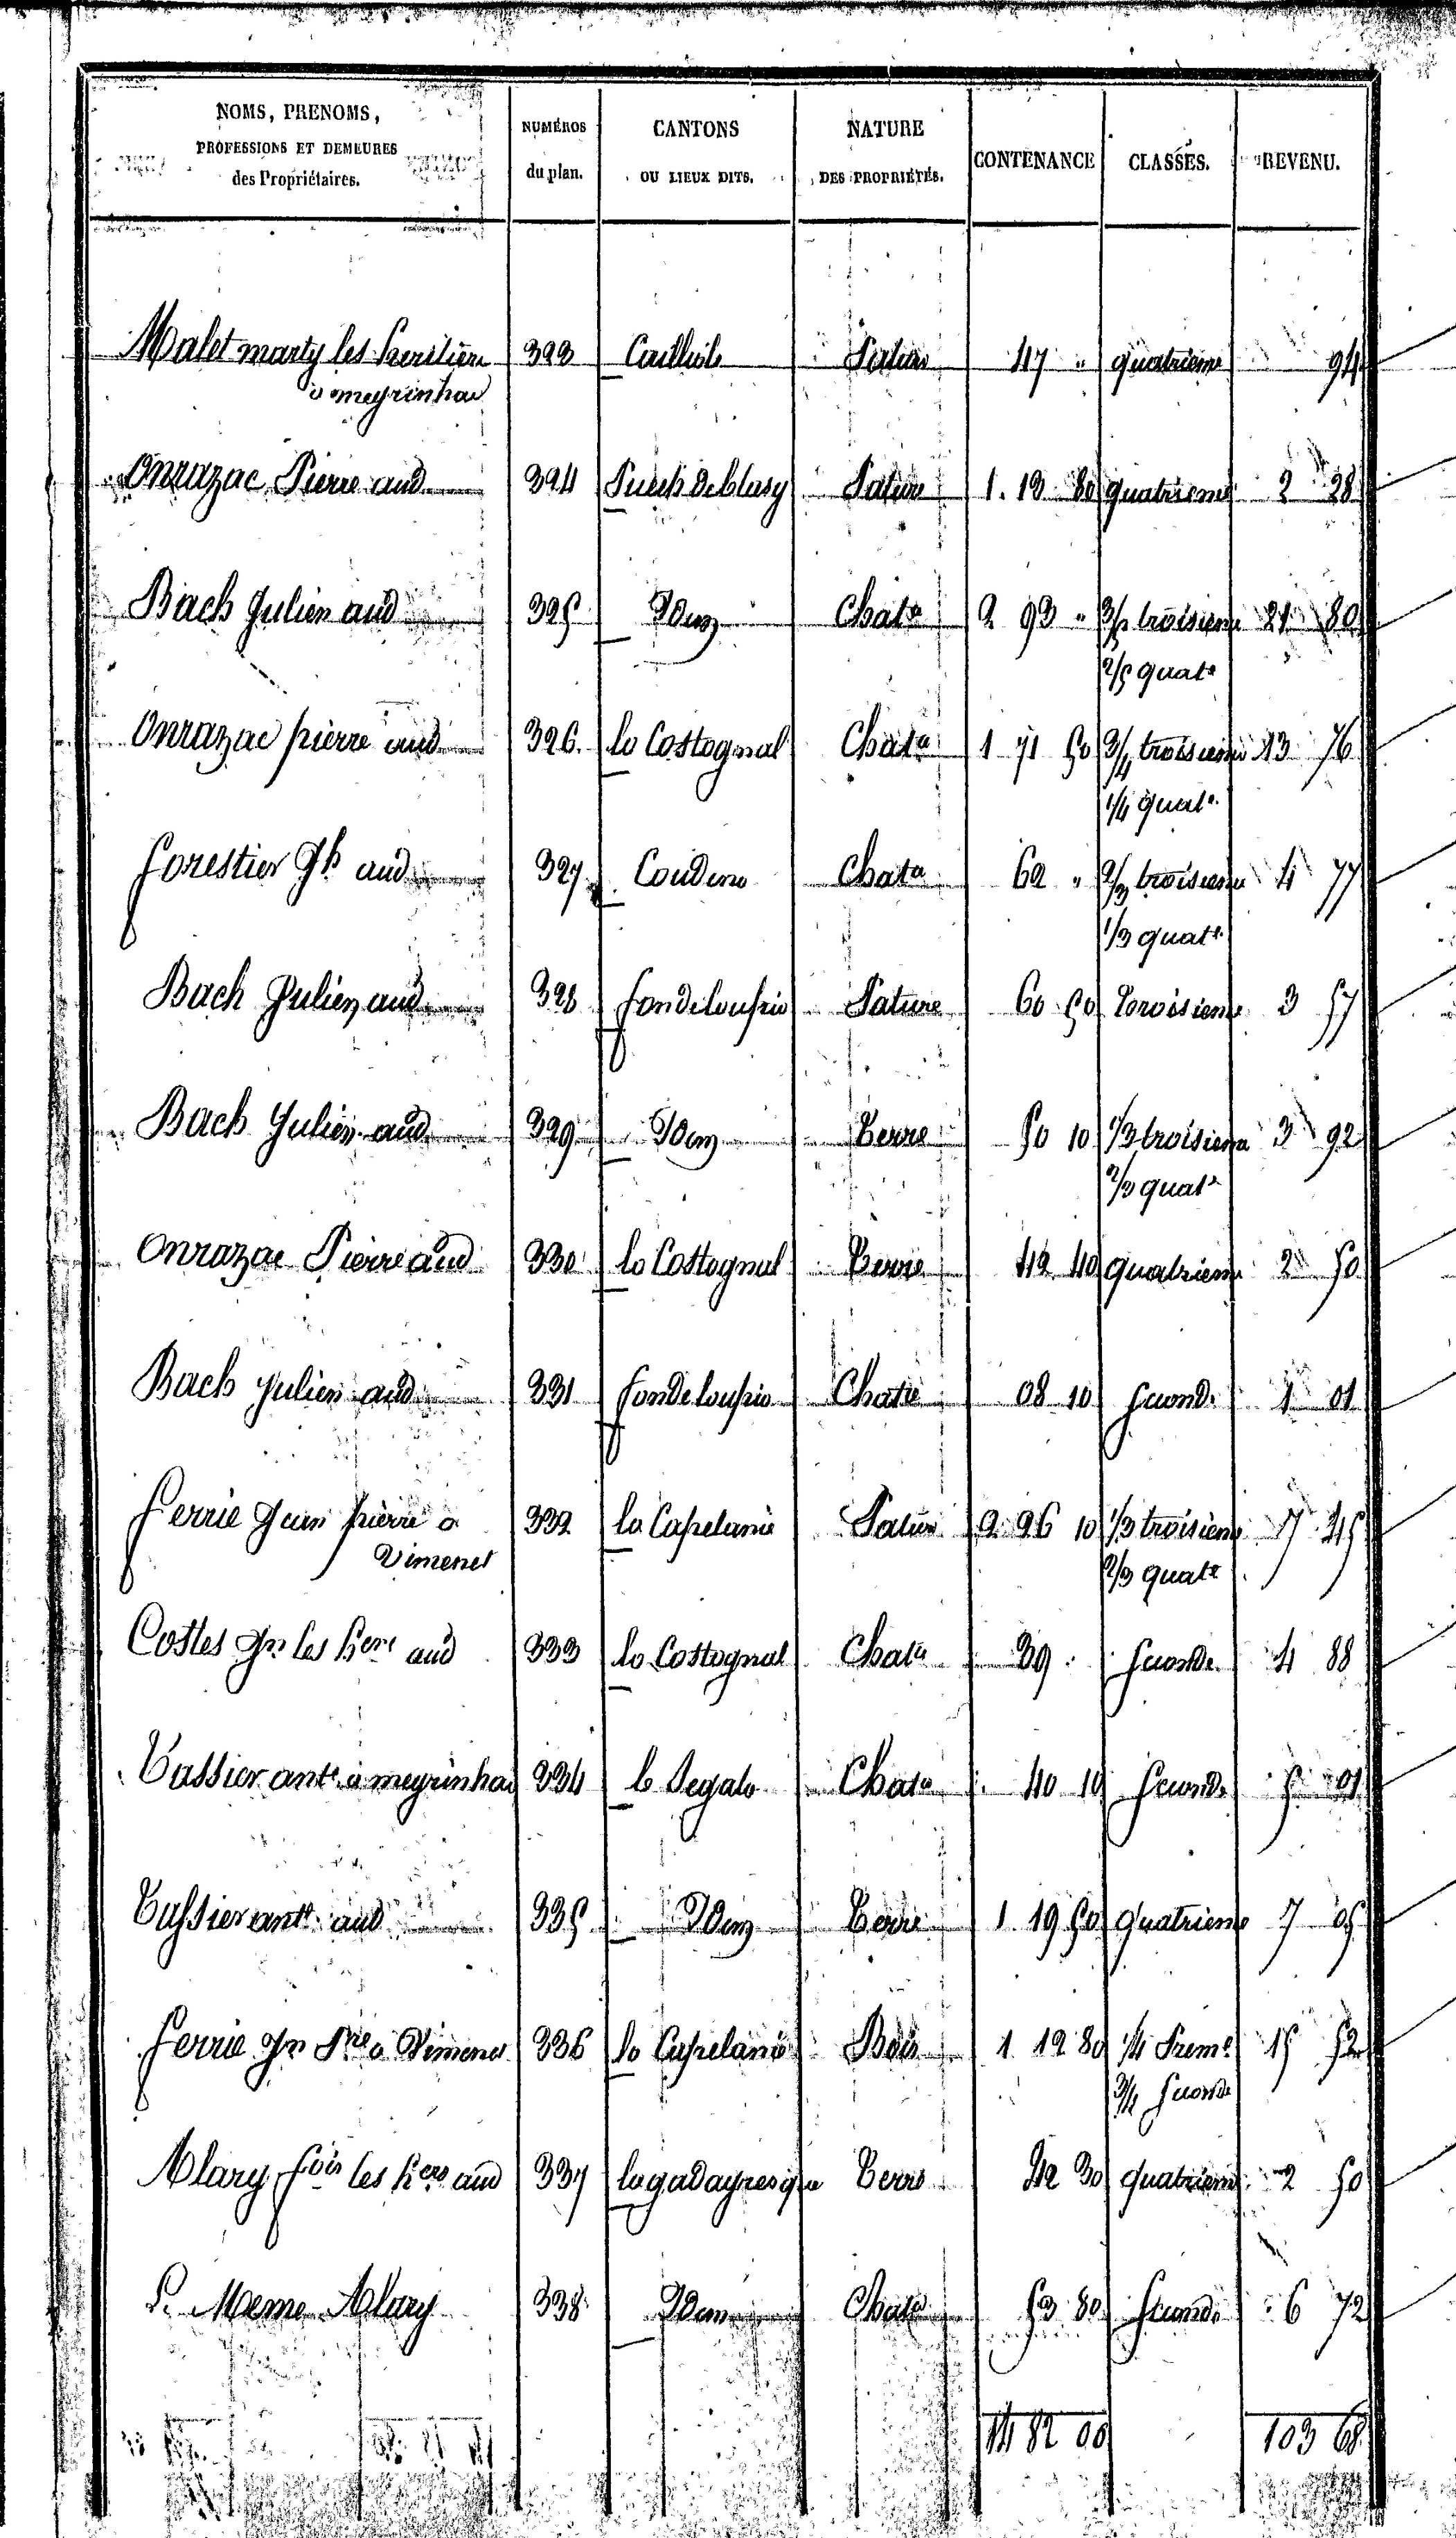 NOMS, PRENOMS, PROFESSIONS ET DEMEURES des Propriétaires. NUMÉROS du plan. CANTONS OU LIEUX DITS. NATURE DES PROPRIÉTÉS. CONTENANCE CLASSES. REVENU.
Malet marty les heritiers 323 Pature 47 " quatrieme 94
a meyrinhac
Onrazac Pierre aud 324 Puech de blasy Pature 1. 13 80 quatrieme 2 28
Bach Julien aud 325 Idem Chat.e 2 93 " 3/5 troisieme 21 80
2/5 quat.e
Onrazac pierre aud 326 lo Costognal Chat.e 1 71 50 3/4 troisieme 13 76
1/4 quat.e
forestier Jh aud 327 Couderc Chat.e 62 " 2/3 troisieme 4 77
1/3 quat.e
Bach Julien aud 328 fondeloupio Pature 60 50 troisieme 3 57
Bach Julien aud 329 Idem terre 50 10 1/3 troisieme 3 92
2/3 quat.e
Onrazac Pierre aud 330 lo Costognal terre 42 40 quatrieme 2 50
Bach Julien aud 331 fondeloupio Chat.e 08 10 seconde 1 01
ferrie Jean pierre a 332 la Capelanie Pature 2 26 10 1/3 troisieme 7 45
Vimenet 2/3 quat.e
Costes Jn les hers aud 333 lo Costognal Chat.e 39 . seconde 4 88
Tassier ant.e a meyrinhac 334 le Segala Chat.e 40 10 seconde 5 01
Tassier ant.e aud 335 Idem terre 1 19 50 quatrieme 7 05
ferrie Jn Pre a Vimenet 336 la Capelanie Bois 1 12 80 1/4 prem.e 15 52
3/4 seconde
Alary fois les hers aud 337 la gadayresque terre 42 30 quatrieme 2 50
L. Meme Alary 338 Idem Chat.e 53 80 seconde 6 72
14 82 00 103 68